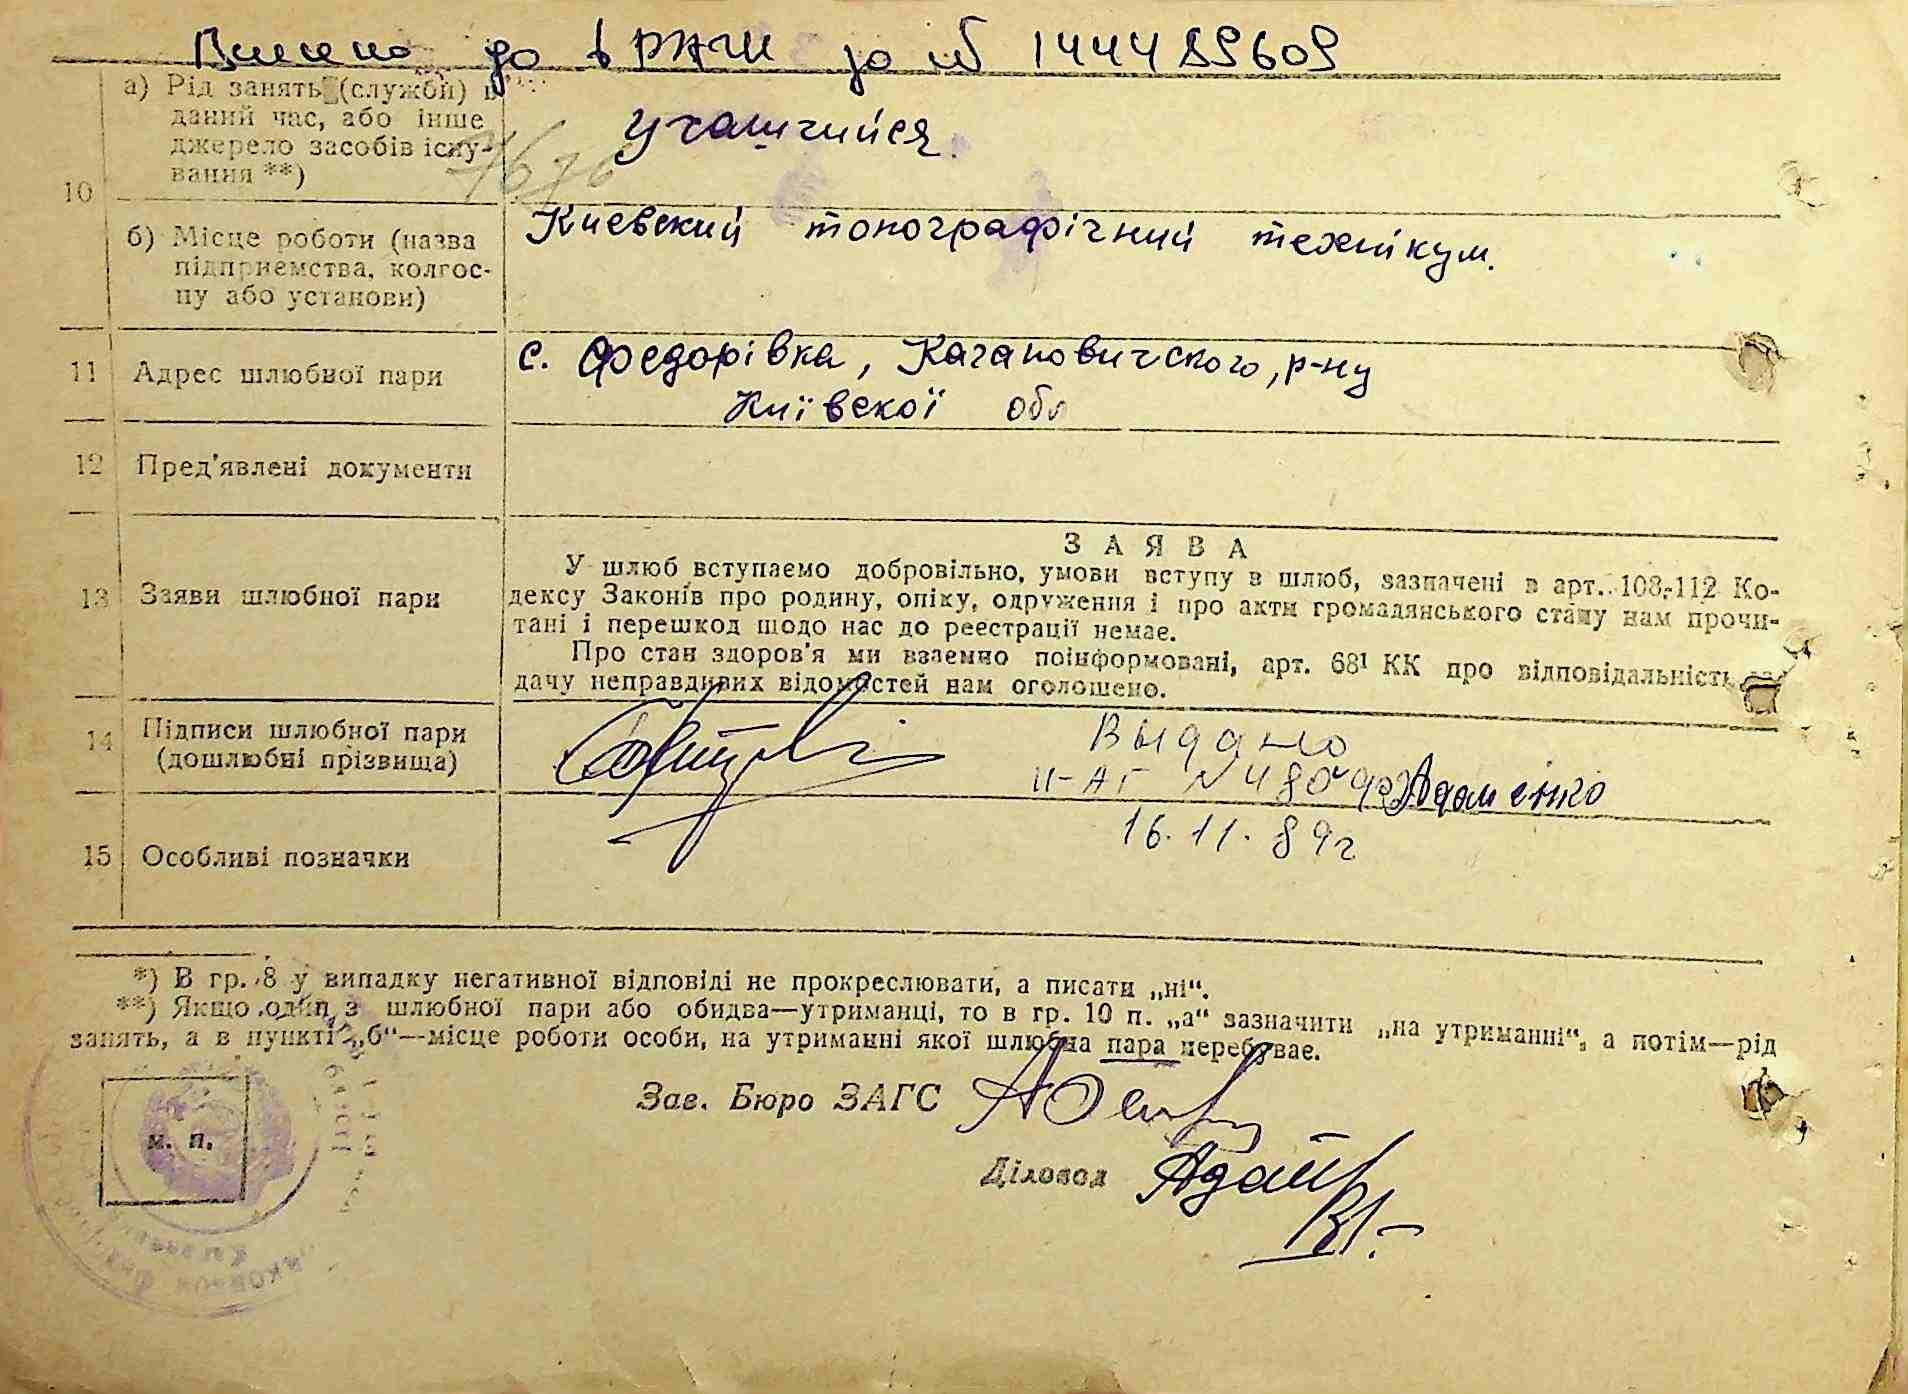 Внесено до ДРАЦС за № 1444 89609
10
а) Рід занять (служби) в
даний час, або інше
джерело засобів існу-
вання **)
учащийся.
б) Місце роботи (назва
підприємства, колгос-
пу або установи)
Киевский топографічний технікум.
11
Адрес шлюбної пари
с. Федорівка, Кагановичского, р-ну
Київскої обл
12
Пред'явлені документи
13
Заяви шлюбної пари
ЗАЯВА
У шлюб вступаємо добровільно, умови вступу в шлюб, зазначені в арт. 108-112 Ко-
дексу Законів про родину, опіку, одруження і про акти громадянського стану нам прочи-
тані і перешкод щодо нас до реєстрації немає.
Про стан здоров'я ми взаємно поінформовані, арт. 68¹ КК про відповідальність
дачу неправдивих відомостей нам оголошено.
14
Підписи шлюбної пари
(дошлюбні прізвища)
Выдано
II-АГ № 480 Адаменко
16.11.89г
15
Особливі позначки
*) В гр. 8 у випадку негативної відповіді не прокреслювати, а писати „ні“.
**) Якщо один з шлюбної пари або обидва—утриманці, то в гр. 10 п. „а“ зазначити „на утриманні“, а потім—рід
занять, а в пункті „б“—місце роботи особи, на утриманні якої шлюбна пара перебуває.
м. п.
Зав. Бюро ЗАГС
Діловод